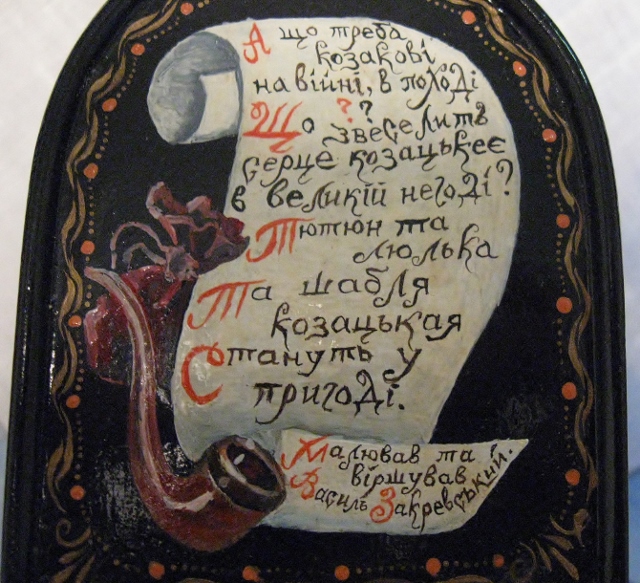 А що треба
козакові
на війні, в поході
? ?
Що звеселить
серце козацькеє
в великій негоді?
Тютюн та
люлька
Та шабля
козацькая
Стануть у
пригоді.
Малював та
віршував
Василь Закревський.